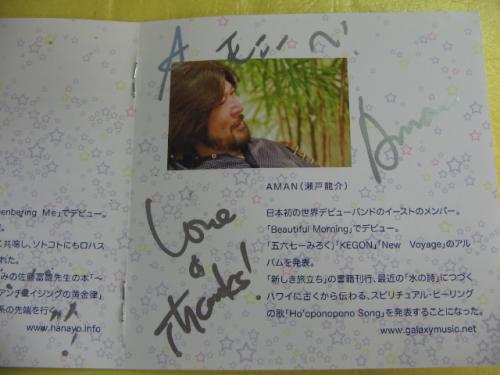 enbering Me」でデビュー。
く共鳴し、ソトコトにもロハス
れた。
みの佐藤富雄先生の本「〜
アンチエイジングの黄金律」
系の先端を行く
www.hanayo.info
へ!
Aman
Love
&
Thanks!
AMAN(瀬戸龍介)
日本初の世界デビューバンドのイーストのメンバー。
「Beautiful Morning」でデビュー。
「五六七ーみろく」「KEGON」「New Voyage」のアル
バムを発表。
「新しき旅立ち」の書籍刊行、最近の「水の詩」につづく
ハワイに古くから伝わる、スピリチュアル・ヒーリング
の歌「Ho'oponopono Song」を発表することになった。
www.galaxymusic.net